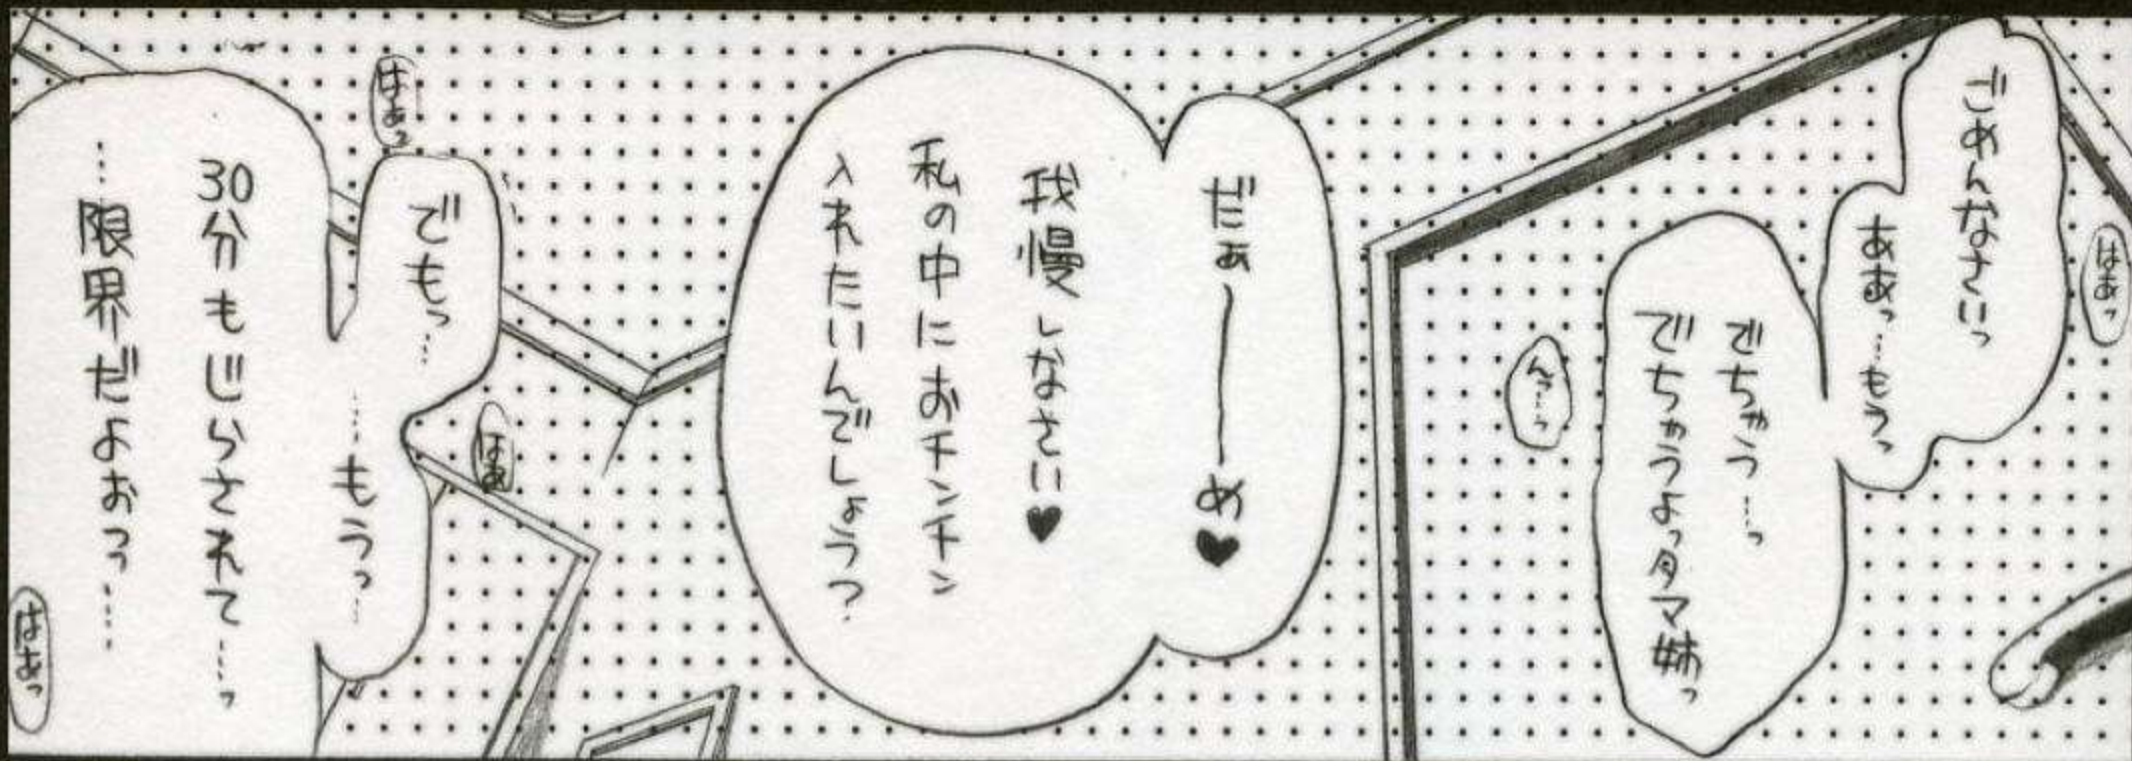 はぁっ
ごめんなさいっ
ああっ…もうっ
でちゃう…っ
でちゃうよっタマ姉っ
んう…っ
だぁーーめ♥
我慢しなさい♥
私の中におチンチン
入れたいんでしょう?
はぁっ
でもっ…
はぁ
……もうっ…
30分もじらされて……っ
…限界だよおっっ……
はぁっ